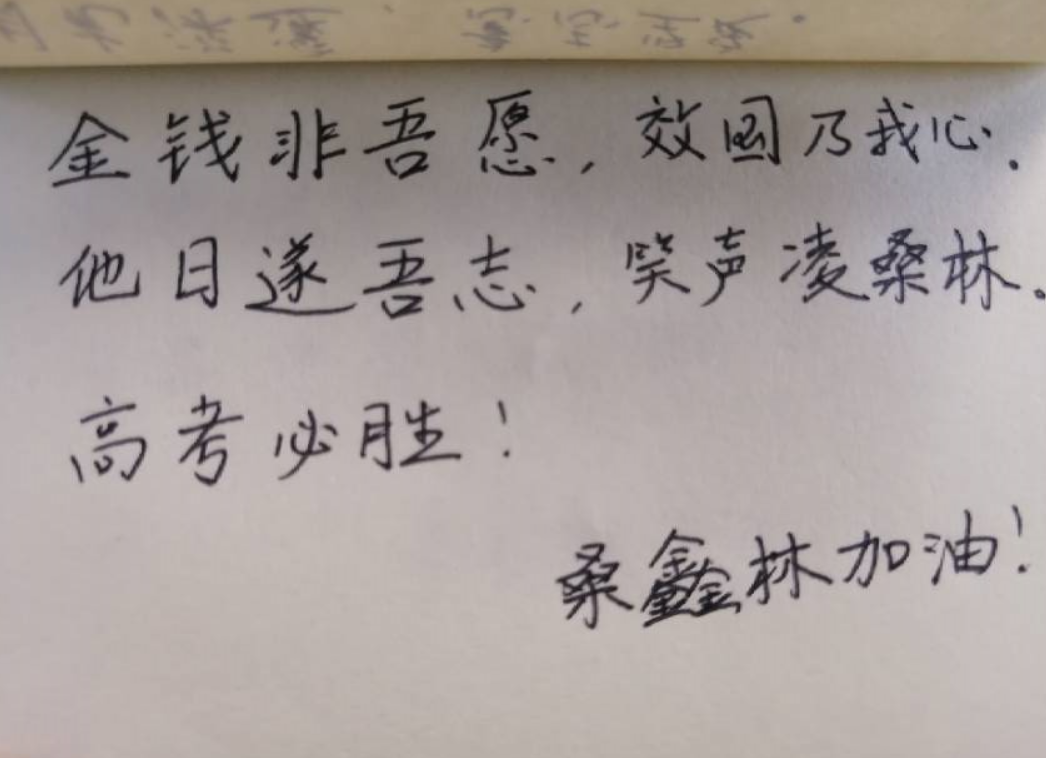 金钱非吾愿，效国乃我心．
他日遂吾志，笑声凌桑林。
高考必胜！
桑鑫林加油！